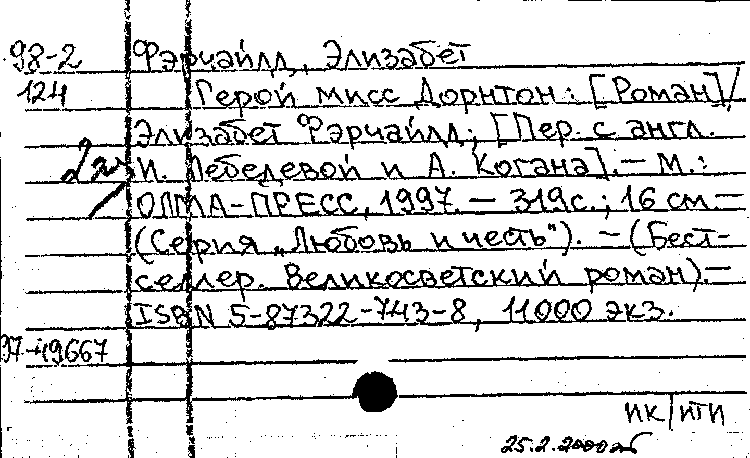 98-2 Фэрчайлд, Элизабет
124 Герой мисс Дорнтон: [Роман]/
Элизабет Фэрчайлд; [Пер. с англ.
И. Лебедевой и А. Когана]. — М.:
ОЛМА-ПРЕСС, 1997. — 319с.; 16 см. —
(Серия „Любовь и честь"). — (Бест-
селлер. Великосветский роман). —
ISBN 5-87322-743-8, 11000 экз.
97-49667
ИК/ИТИ
25.2.2000